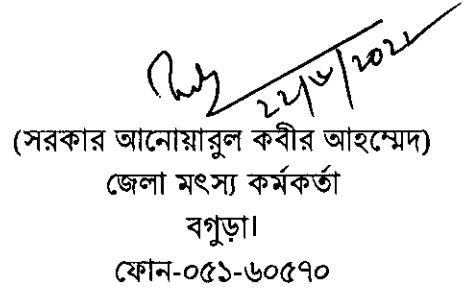 22/৮/2021
(সরকার আনোয়ারুল কবীর আহম্মেদ)
জেলা মৎস্য কর্মকর্তা
বগুড়া।
ফোন-০৫১-৬০৫৭০